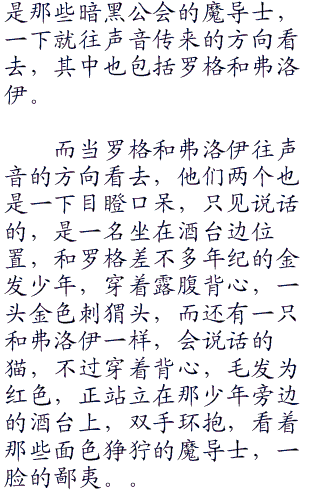 是那些暗黑公会的魔导士，
一下就往声音传来的方向看
去，其中也包括罗格和弗洛
伊。
而当罗格和弗洛伊往声
音的方向看去，他们两个也
是一下目瞪口呆，只见说话
的，是一名坐在酒台边位
置，和罗格差不多年纪的金
发少年，穿着露腹背心，一
头金色刺猬头，而还有一只
和弗洛伊一样，会说话的
猫，不过穿着背心，毛发为
红色，正站立在那少年旁边
的酒台上，双手环抱，看着
那些面色狰狞的魔导士，一
脸的鄙夷。。